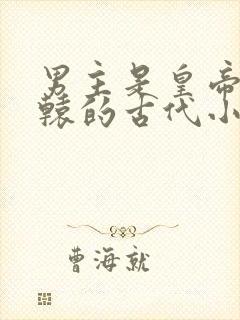 男主是皇帝
辕的古代小
曹海就